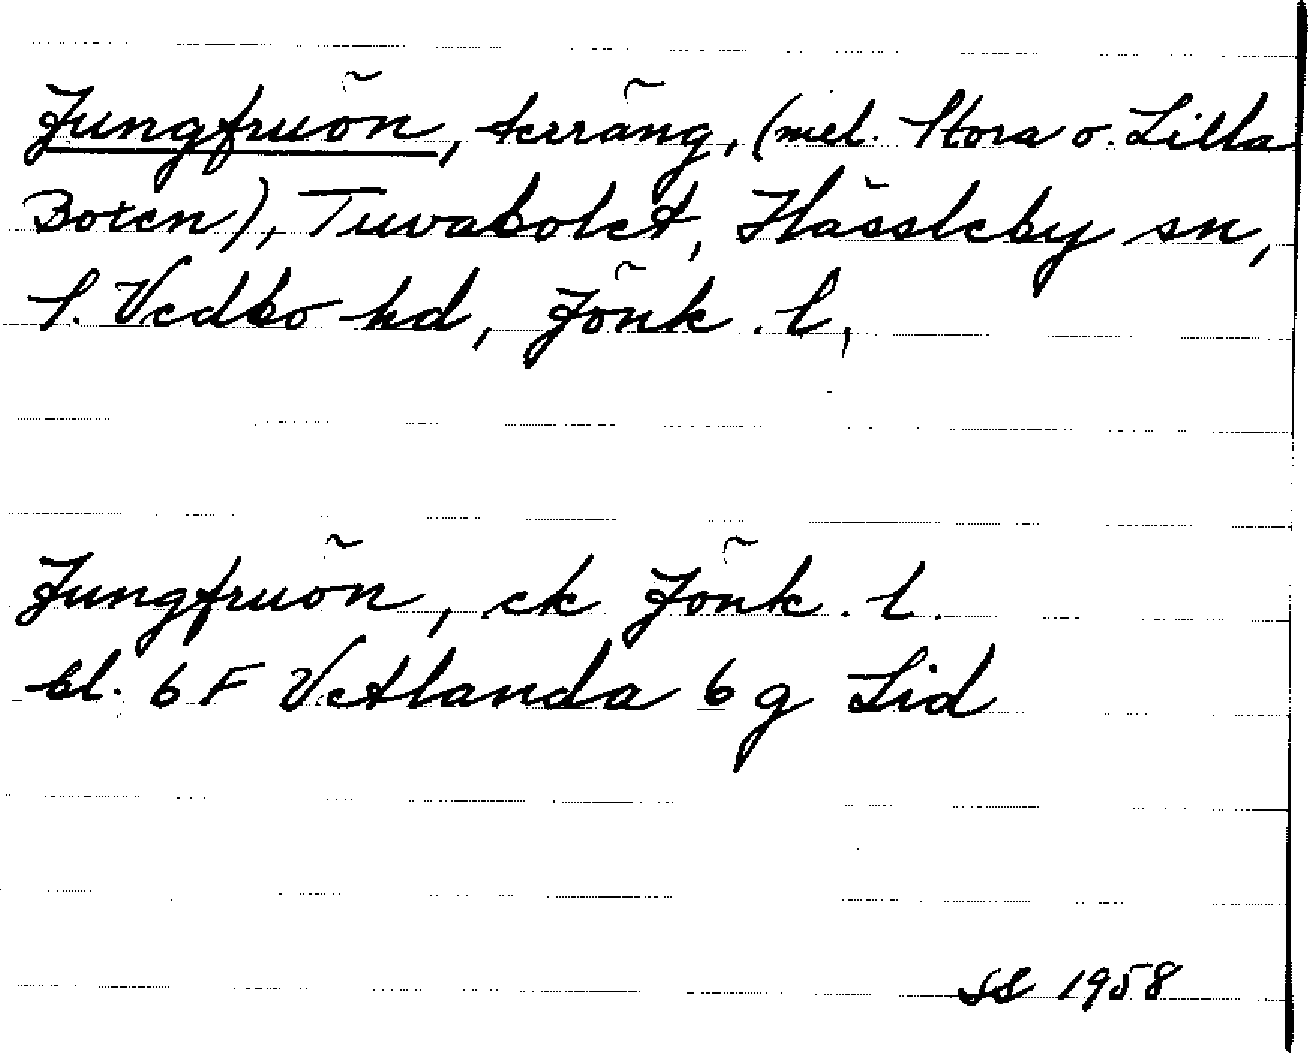 Jungfruön, terräng, (mel. Stora o. Lilla
Boten), Tuvabolet, Hässleby sn,
S. Vedbo hd, Jönk. l,
Jungfruön, ek Jönk. l.
bl. 6 F Vetlanda 6 g Lid
SS 1958